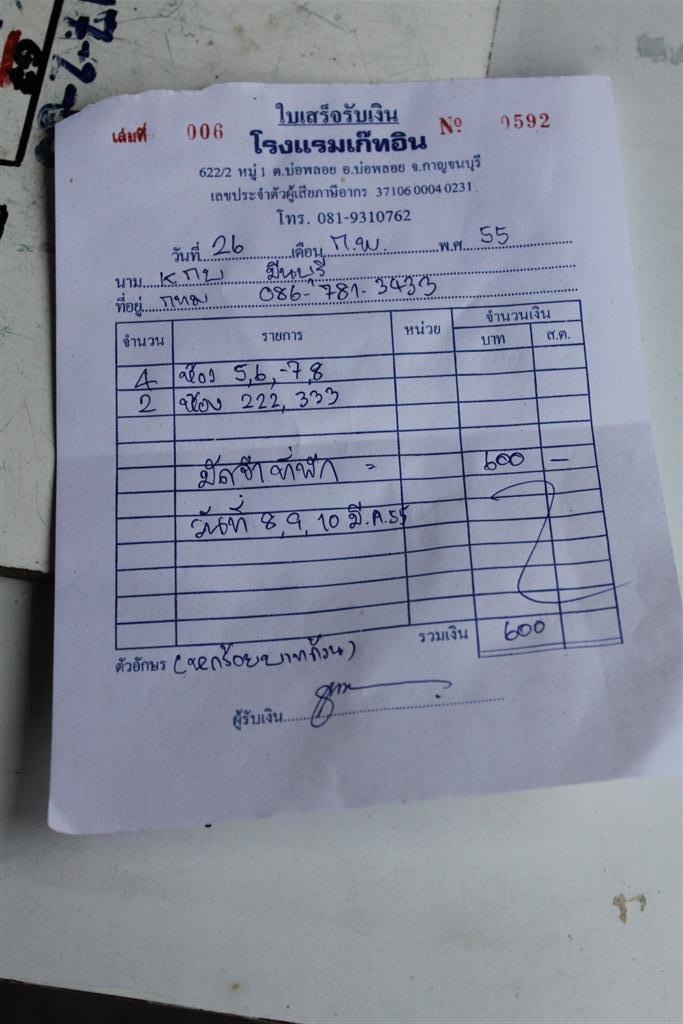 ใบเสร็จรับเงิน
เล่มที่ 006 Nº 0592
โรงแรมเก๊ทอิน
622/2 หมู่ 1 ต.บ่อพลอย อ.บ่อพลอย จ.กาญจนบุรี
เลขประจำตัวผู้เสียภาษีอากร 37106 0004 0231
โทร. 081-9310762
วันที่ 26 เดือน ก.พ. พ.ศ 55
นาม มีนบุรี
ที่อยู่ กทม 086-781-3433
จำนวน รายการ หน่วย จำนวนเงิน
บาท ส.ต.
4 ห้อง 5,6,-7,8
2 ห้อง 222, 333
มัดจำที่พัก = 600 -
วันที่ 8,9,10 มี.ค.55
รวมเงิน 600
ตัวอักษร (หกร้อยบาทถ้วน)
ผู้รับเงิน